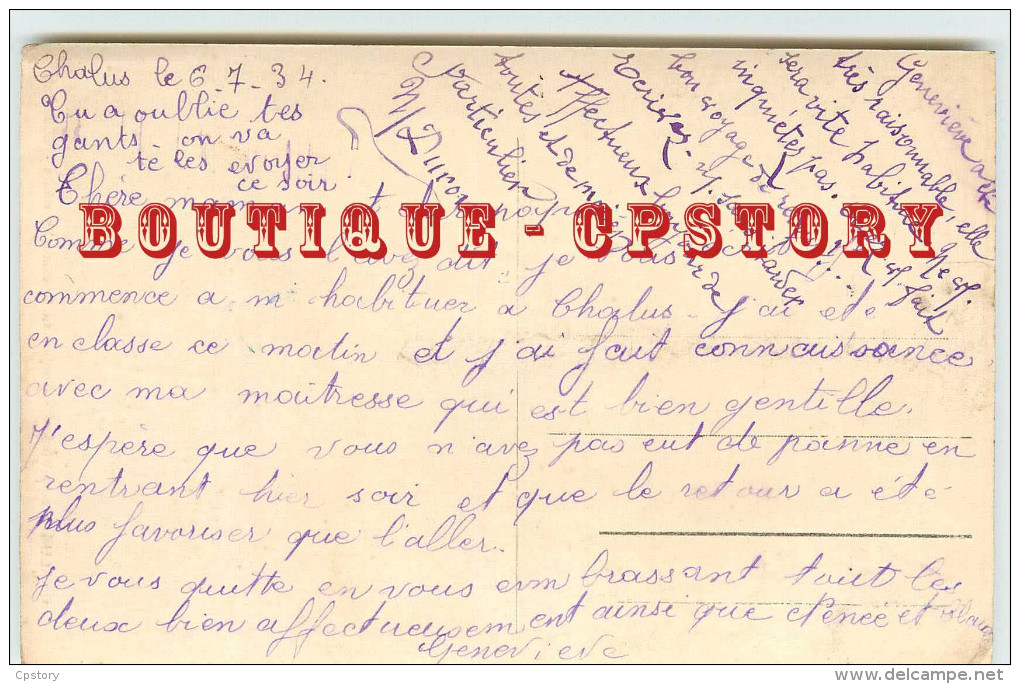 Chalus le 6-7-34.
Tu a oublié tes
gants on va
te les evoyer
ce soir
Chère maman et
Comme je vous l'avez dit je
commence a m'habituer a Chalus. J'ai eté
en classe ce matin et j'ai fait connaissance
avec ma maitresse qui est bien gentille.
J'espère que vous n'avez pas eut de panne en
rentrant hier soir et que le retour a été
plus favoriser que l'aller.
Je vous quitte en vous embrassant tout les
deux bien affectueusement ainsi que et
Geneviève
Geneviève est
très raisonnable, elle
sera vite habituée Ne
inquiétez pas.
bon voyage de
Ecrivez
Affectueux
toutes et de
particulier
BOUTIQUE - CPSTORY
Cpstory
www.delcampe.net